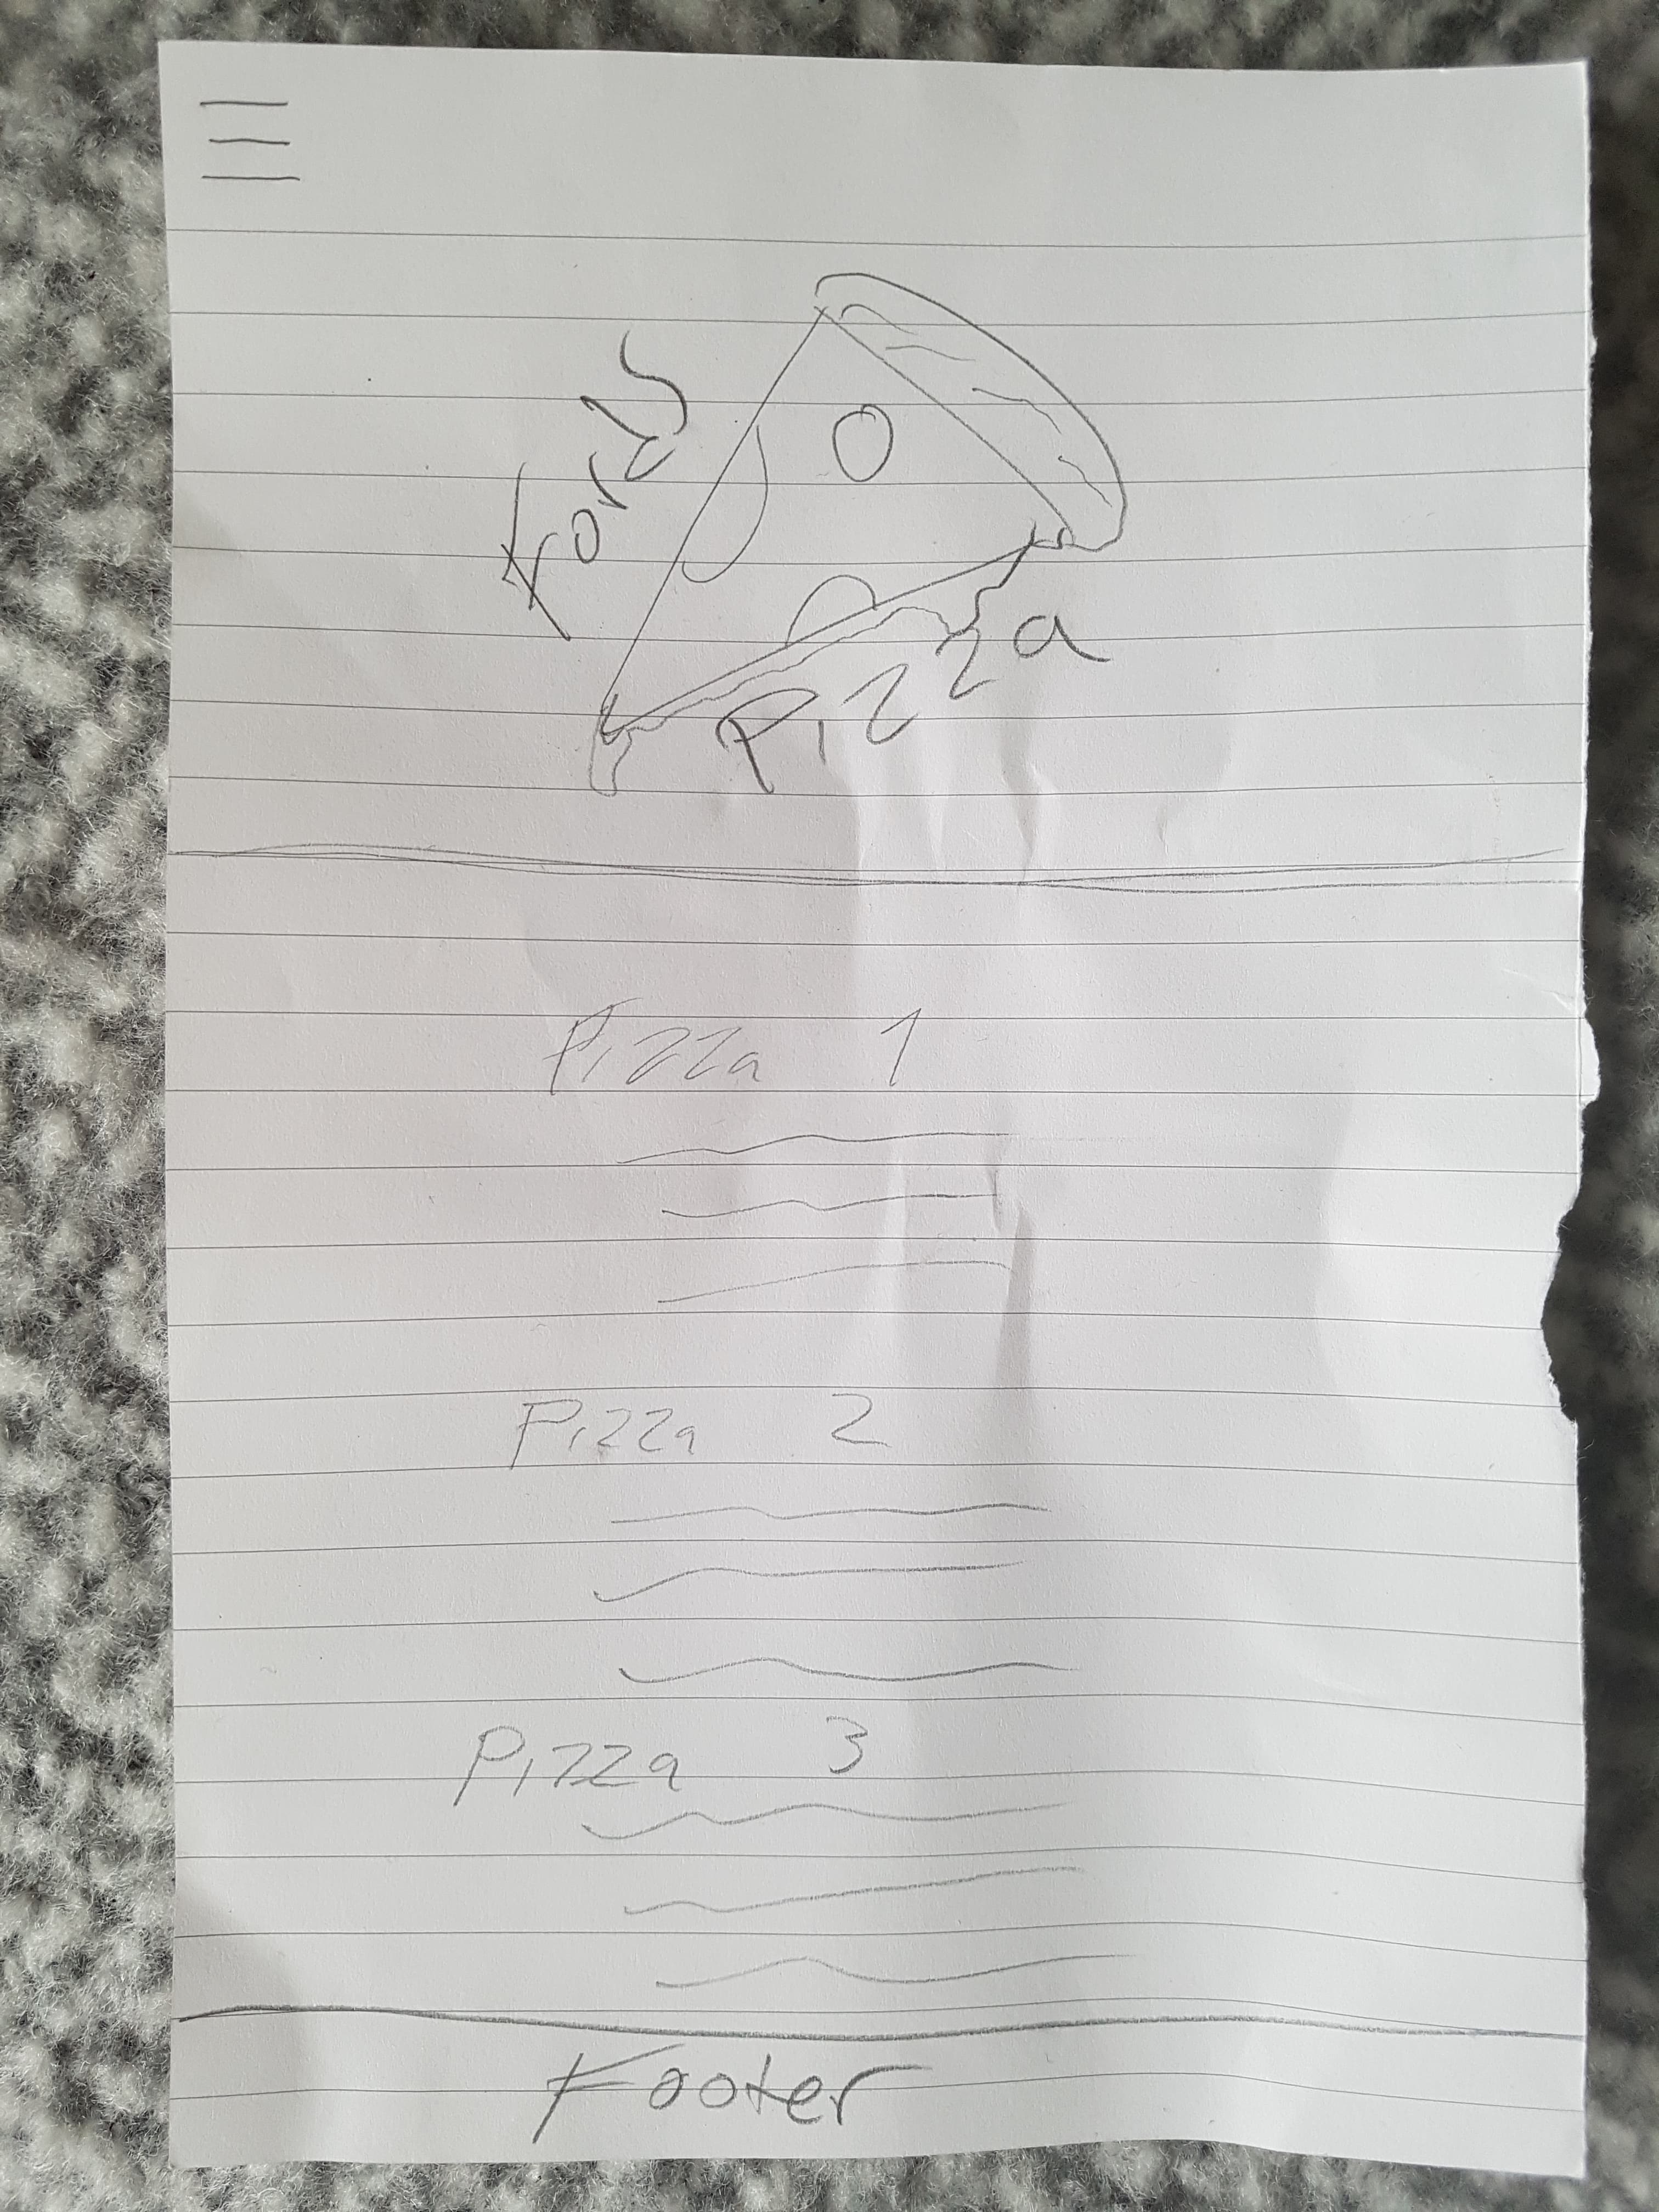 Fords
Pizza
Pizza 1
Pizza 2
Pizza 3
Footer